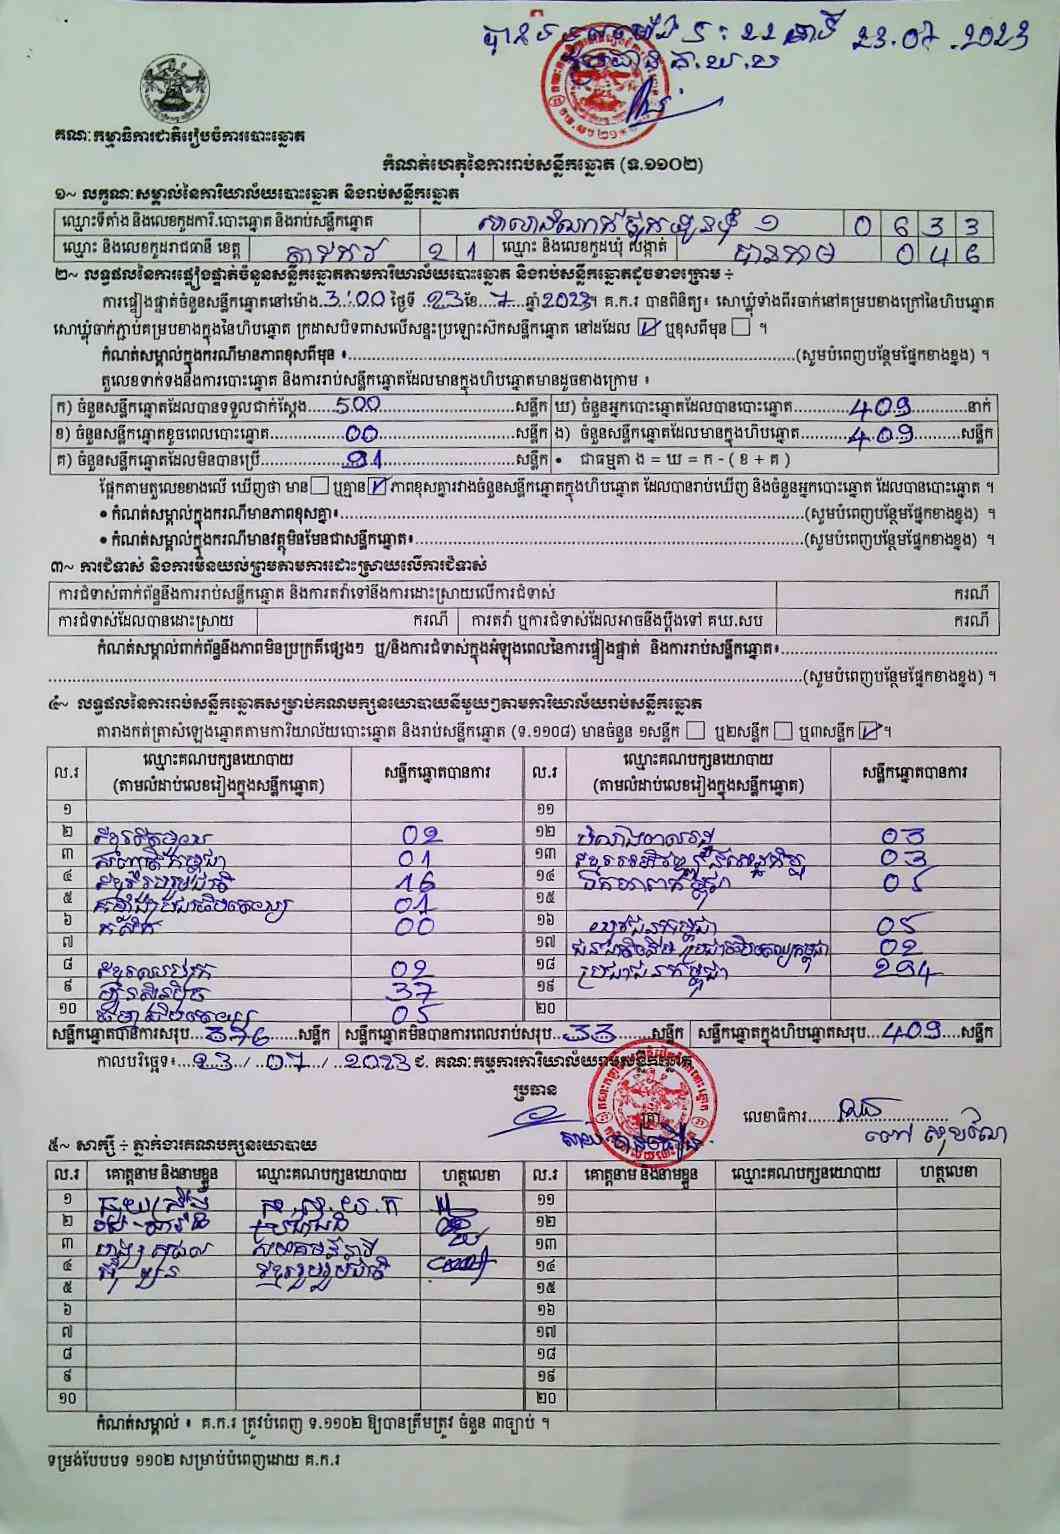 23.07.2023
គណៈកម្មាធិការជាតិរៀបចំការបោះឆ្នោត
កំណត់ហេតុនៃការរាប់សន្លឹកឆ្នោត (ទ.១១០២)
១~ លក្ខណៈសម្គាល់នៃការិយាល័យបោះឆ្នោត និងរាប់សន្លឹកឆ្នោត
ឈ្មោះទីតាំង និងលេខកូដការិ.បោះឆ្នោត និងរាប់សន្លឹកឆ្នោត ១ 0 6 3 3
ឈ្មោះ និងលេខកូដរាជធានី ខេត្ត តាកែវ 2 1 ឈ្មោះ និងលេខកូដឃុំ សង្កាត់ បានកាម 0 4 6
២~ លទ្ធផលនៃការផ្ទៀងផ្ទាត់ចំនួនសន្លឹកឆ្នោតតាមការិយាល័យបោះឆ្នោត និងរាប់សន្លឹកឆ្នោតដូចខាងក្រោម ÷
ការផ្ទៀងផ្ទាត់ចំនួនសន្លឹកឆ្នោតនៅម៉ោង 3:00 ថ្ងៃទី 23 ខែ 7 ឆ្នាំ 2023។ គ.ក.រ បានពិនិត្យ៖ សោឃ្លុំទាំងពីរចាក់នៅគម្របខាងក្រៅនៃហិបឆ្នោត
សោឃ្លុំចាក់ភ្ជាប់គម្របខាងក្នុងនៃហិបឆ្នោត ក្រដាសបិទពាសលើសន្ទះប្រឡោះស៊កសន្លឹកឆ្នោត នៅដដែល ☑ ឬខុសពីមុន ☐ ។
កំណត់សម្គាល់ក្នុងករណីមានភាពខុសពីមុន ៖ (សូមបំពេញបន្ថែមផ្នែកខាងខ្នង) ។
តួលេខទាក់ទងនឹងការបោះឆ្នោត និងការរាប់សន្លឹកឆ្នោតដែលមានក្នុងហិបឆ្នោតមានដូចខាងក្រោម ៖
ក) ចំនួនសន្លឹកឆ្នោតដែលបានទទួលជាក់ស្តែង 500 សន្លឹក ឃ) ចំនួនអ្នកបោះឆ្នោតដែលបានបោះឆ្នោត 409 នាក់
ខ) ចំនួនសន្លឹកឆ្នោតខូចពេលបោះឆ្នោត 00 សន្លឹក ង) ចំនួនសន្លឹកឆ្នោតដែលមានក្នុងហិបឆ្នោត 409 សន្លឹក
គ) ចំនួនសន្លឹកឆ្នោតដែលមិនបានប្រើ 91 សន្លឹក • ជាធម្មតា ង = ឃ = ក - ( ខ + គ )
ផ្អែកតាមតួលេខខាងលើ ឃើញថា មាន ☐ ឬគ្មាន ☑ ភាពខុសគ្នារវាងចំនួនសន្លឹកឆ្នោតក្នុងហិបឆ្នោត ដែលបានរាប់ឃើញ និងចំនួនអ្នកបោះឆ្នោត ដែលបានបោះឆ្នោត ។
• កំណត់សម្គាល់ក្នុងករណីមានភាពខុសគ្នា៖ (សូមបំពេញបន្ថែមផ្នែកខាងខ្នង) ។
• កំណត់សម្គាល់ក្នុងករណីមានវត្ថុមិនមែនជាសន្លឹកឆ្នោត៖ (សូមបំពេញបន្ថែមផ្នែកខាងខ្នង) ។
៣~ ការជំទាស់ និងការមិនយល់ព្រមតាមការដោះស្រាយលើការជំទាស់
ការជំទាស់ពាក់ព័ន្ធនឹងការរាប់សន្លឹកឆ្នោត និងការតវ៉ាទៅនឹងការដោះស្រាយលើការជំទាស់ ករណី
ការជំទាស់ដែលបានដោះស្រាយ ករណី ការតវ៉ា ឬការជំទាស់ដែលអាចនឹងប្តឹងទៅ គឃ.សប ករណី
កំណត់សម្គាល់ពាក់ព័ន្ធនឹងភាពមិនប្រក្រតីផ្សេងៗ ឬ/និងការជំទាស់ក្នុងអំឡុងពេលនៃការផ្ទៀងផ្ទាត់ និងការរាប់សន្លឹកឆ្នោត៖
(សូមបំពេញបន្ថែមផ្នែកខាងខ្នង) ។
៤~ លទ្ធផលនៃការរាប់សន្លឹកឆ្នោតសម្រាប់គណបក្សនយោបាយនីមួយៗតាមការិយាល័យរាប់សន្លឹកឆ្នោត
តារាងកត់ត្រាសំឡេងឆ្នោតតាមការិយាល័យបោះឆ្នោត និងរាប់សន្លឹកឆ្នោត (ទ.១១០៨) មានចំនួន ១សន្លឹក ☐ ឬ២សន្លឹក ☐ ឬ៣សន្លឹក ☑ ។
ល.រ ឈ្មោះគណបក្សនយោបាយ (តាមលំដាប់លេខរៀងក្នុងសន្លឹកឆ្នោត) សន្លឹកឆ្នោតបានការ ល.រ ឈ្មោះគណបក្សនយោបាយ (តាមលំដាប់លេខរៀងក្នុងសន្លឹកឆ្នោត) សន្លឹកឆ្នោតបានការ
១ ១១
២ ខ្មែរតែមួយ 02 ១២ 03
៣ សញ្ជាតិកម្ពុជា 01 ១៣ ខ្មែរអភិវឌ្ឍន៍សេដ្ឋកិច្ច 03
៤ ខ្មែររួបរួមជាតិ 16 ១៤ ឯកភាពកម្ពុជា 05
៥ កម្លាំងប្រជាធិបតេយ្យ 01 ១៥
៦ កសិករ 00 ១៦ យុវជនកម្ពុជា 05
៧ ១៧ ជនជាតិដើមប្រជាធិបតេយ្យកម្ពុជា 02
៨ ខ្មែរឈប់ក្រ 02 ១៨ ប្រជាជនកម្ពុជា 294
៩ ហ្វ៊ុនស៊ិនប៉ិច 37 ១៩
១០ ធម្មាធិបតេយ្យ 05 ២០
សន្លឹកឆ្នោតបានការសរុប 376 សន្លឹក សន្លឹកឆ្នោតមិនបានការពេលរាប់សរុប 33 សន្លឹក សន្លឹកឆ្នោតក្នុងហិបឆ្នោតសរុប 409 សន្លឹក
កាលបរិច្ឆេទ៖ 23 / 07 / 2023 ជ. គណៈកម្មការការិយាល័យរាប់សន្លឹកឆ្នោត
ប្រធាន
ត្រា
លេខាធិការ
៥~ សាក្សី ÷ ភ្នាក់ងារគណបក្សនយោបាយ
ល.រ គោត្តនាម និងនាមខ្លួន ឈ្មោះគណបក្សនយោបាយ ហត្ថលេខា ល.រ គោត្តនាម និងនាមខ្លួន ឈ្មោះគណបក្សនយោបាយ ហត្ថលេខា
១ ១១
២ ១២
៣ ១៣
៤ ខ្មែររួបរួមជាតិ ១៤
៥ ១៥
៦ ១៦
៧ ១៧
៨ ១៨
៩ ១៩
១០ ២០
កំណត់សម្គាល់ ៖ គ.ក.រ ត្រូវបំពេញ ទ.១១០២ ឱ្យបានត្រឹមត្រូវ ចំនួន ៣ច្បាប់ ។
ទម្រង់បែបបទ ១១០២ សម្រាប់បំពេញដោយ គ.ក.រ